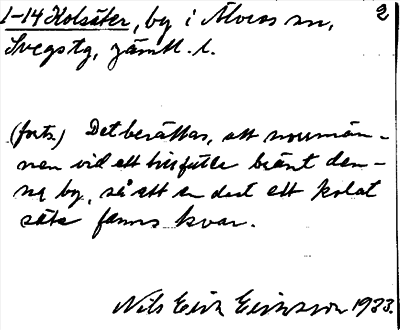 1-14 Kolsäter, by i Älvros sn, 2
Svegs tg, Jämtl. l.
(forts.) Det berättas, att norrmän-
nen vid ett tillfälle bränt den-
na by, så att en dast ett kolat
säte fanns kvar.
Nils Erik Eriksson 1933.